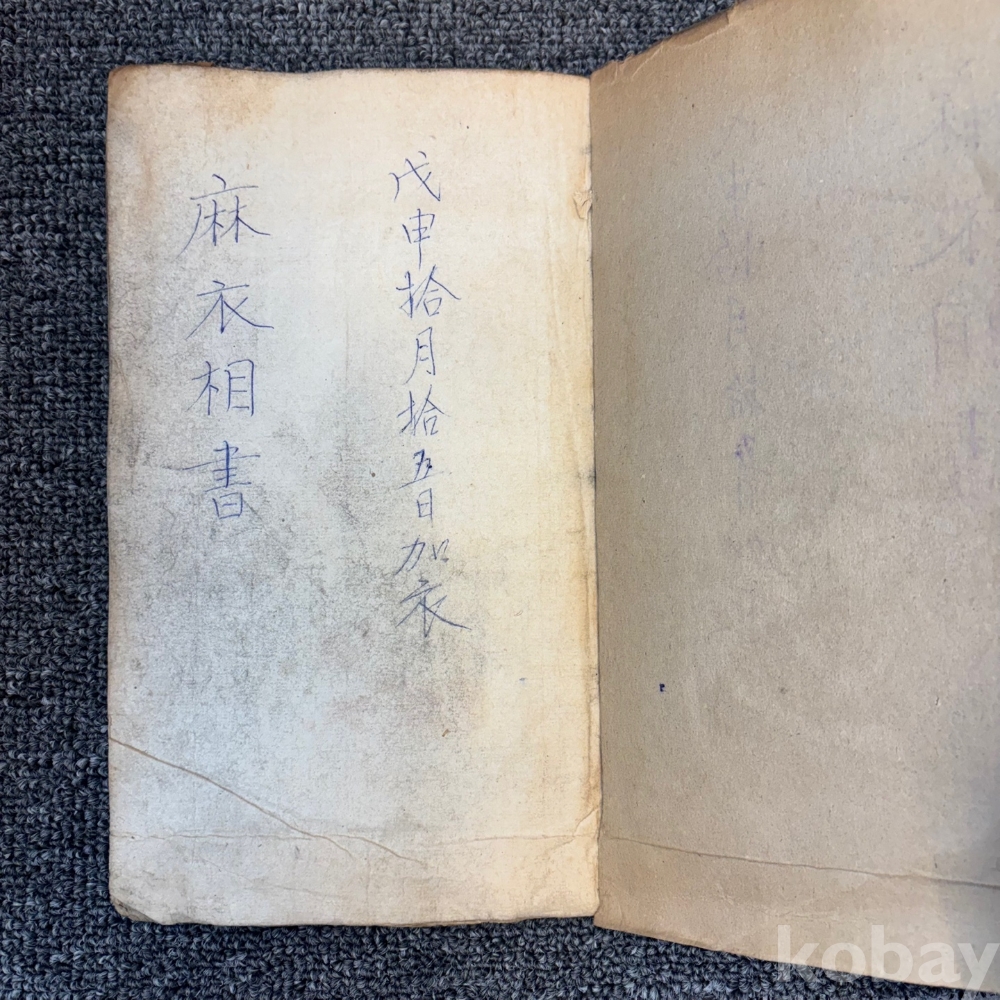 戊申拾月拾五日加衣
麻衣相書
kobay